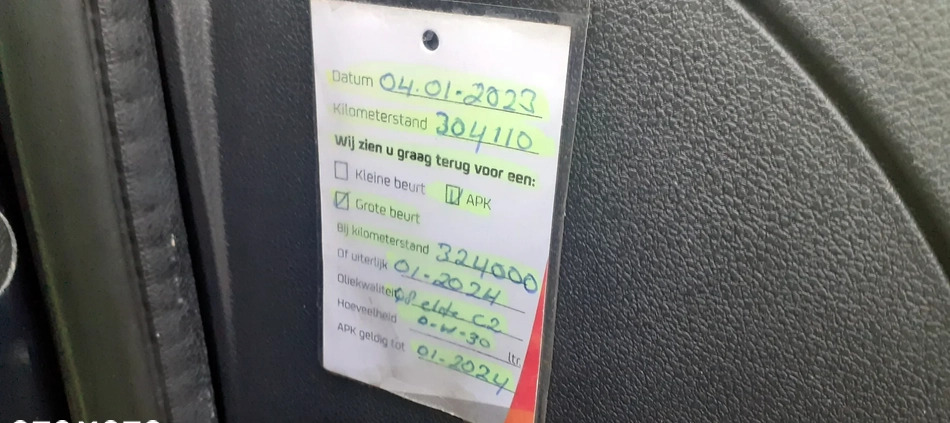 Datum 04.01-2023
Kilometerstand 304110
Wij zien u graag terug voor een:
Kleine beurt APK
Grote beurt
Bij kilometerstand 324000
Of uiterlijk 01-2024
Oliekwaliteit C2
Hoeveelheid 0-W-30 ltr.
APK geldig tot 01-2024